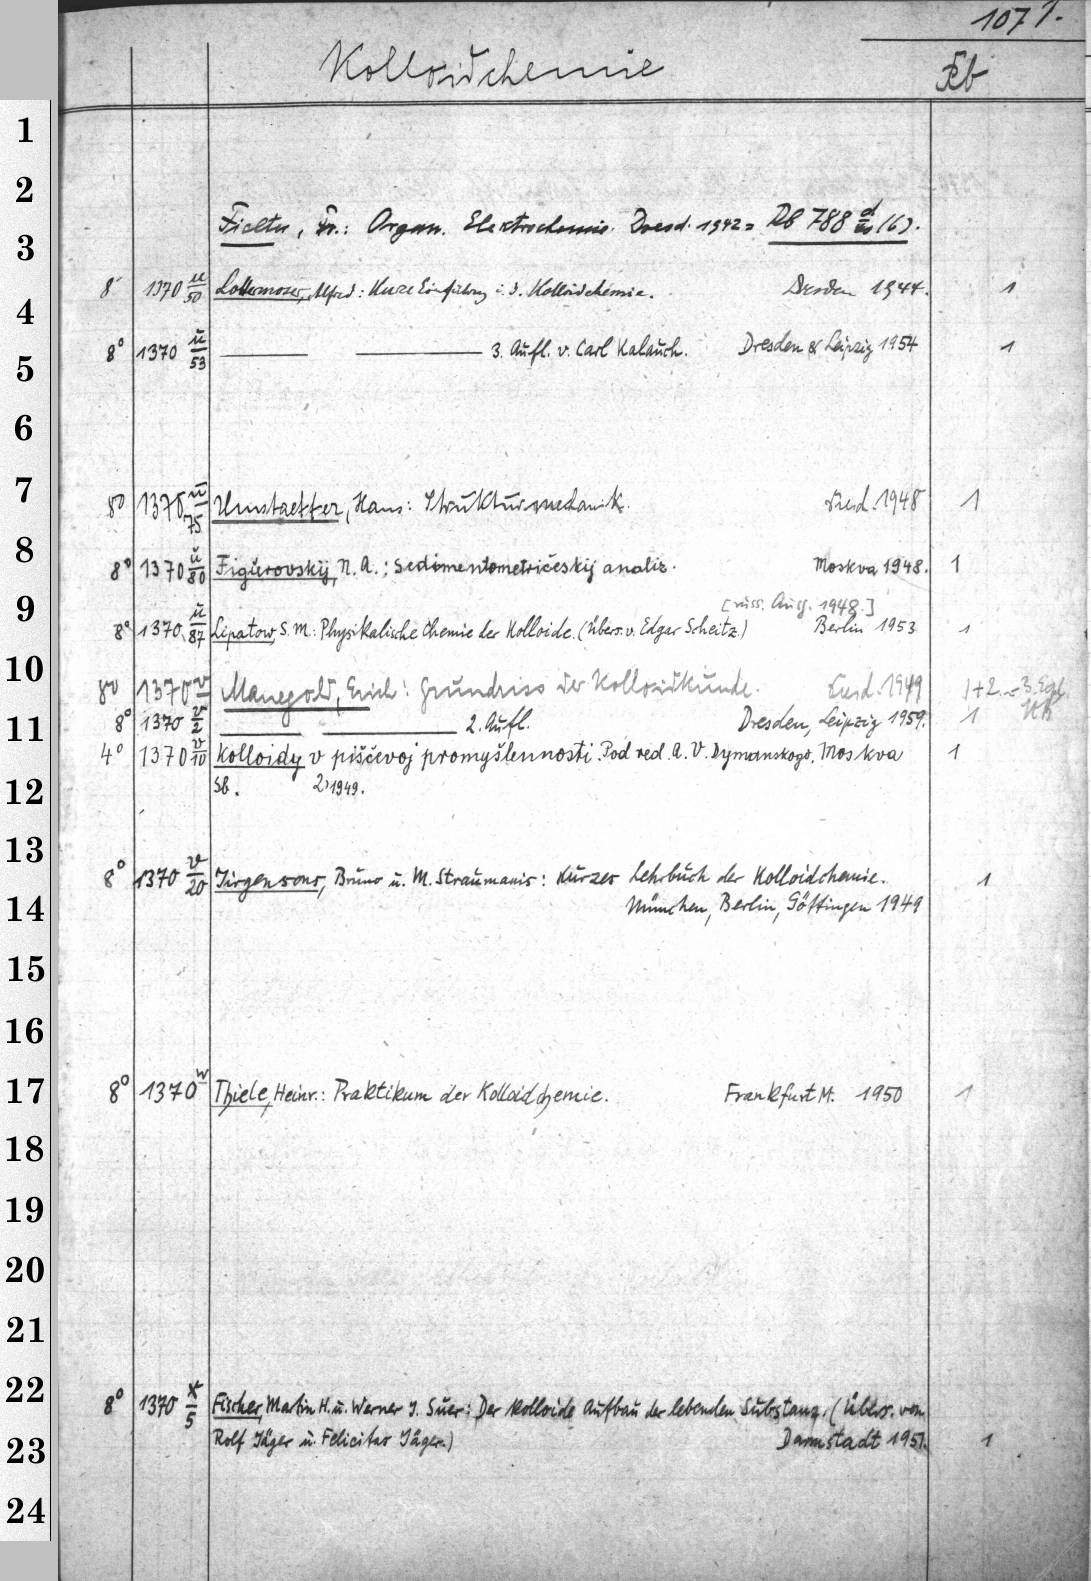 1071.
Kolloidchemie
Fichter, Fr.: Organ. Elektrochemie. Dresd. 1942 = Rb 788 (6).
8° 1370 u/50 Lottermoser, Alfred: Kurze Einführung i. d. Kolloidchemie. Dresden 1944. 1
8° 1370 u/53 3. Aufl. v. Carl Kalauch. Dresden & Leipzig 1954 1
8° 1370 u/75 Umstaetter, Hans: Strukturmechanik. Dresd. 1948 1
8° 1370 u/80 Figurovskij, N. A.: Sedimentometričeskij analiz. Moskva 1948. 1
[russ. Ausg. 1948.]
8° 1370 u/87 Lipatow, S. M.: Physikalische Chemie der Kolloide. (Übers. v. Edgar Scheitz.) Berlin 1953 1
8° 1370 v Manegold, Erich: Grundriss der Kolloidkunde. Dresd. 1949 1+2.
8° 1370 v/2 2. Aufl. Dresden, Leipzig 1959. 1
4° 1370 v/10 Kolloidy v piščevoj promyšlennosti. Pod red. A. V. Dymanskogo. Moskva 1
Sb. 2, 1949.
8° 1370 v/20 Jirgensons, Bruno u. M. Straumanis: Kurzes Lehrbuch der Kolloidchemie. 1
München, Berlin, Göttingen 1949
8° 1370 w Thiele, Heinr.: Praktikum der Kolloidchemie. Frankfurt M. 1950 1
8° 1370 x/5 Fischer, Martin H. u. Werner J. Suer: Der kolloide Aufbau der lebenden Substanz. (Übers. von
Rolf Jäger u. Felicitas Jäger.) Darmstadt 1951. 1
1
2
3
4
5
6
7
8
9
10
11
12
13
14
15
16
17
18
19
20
21
22
23
24